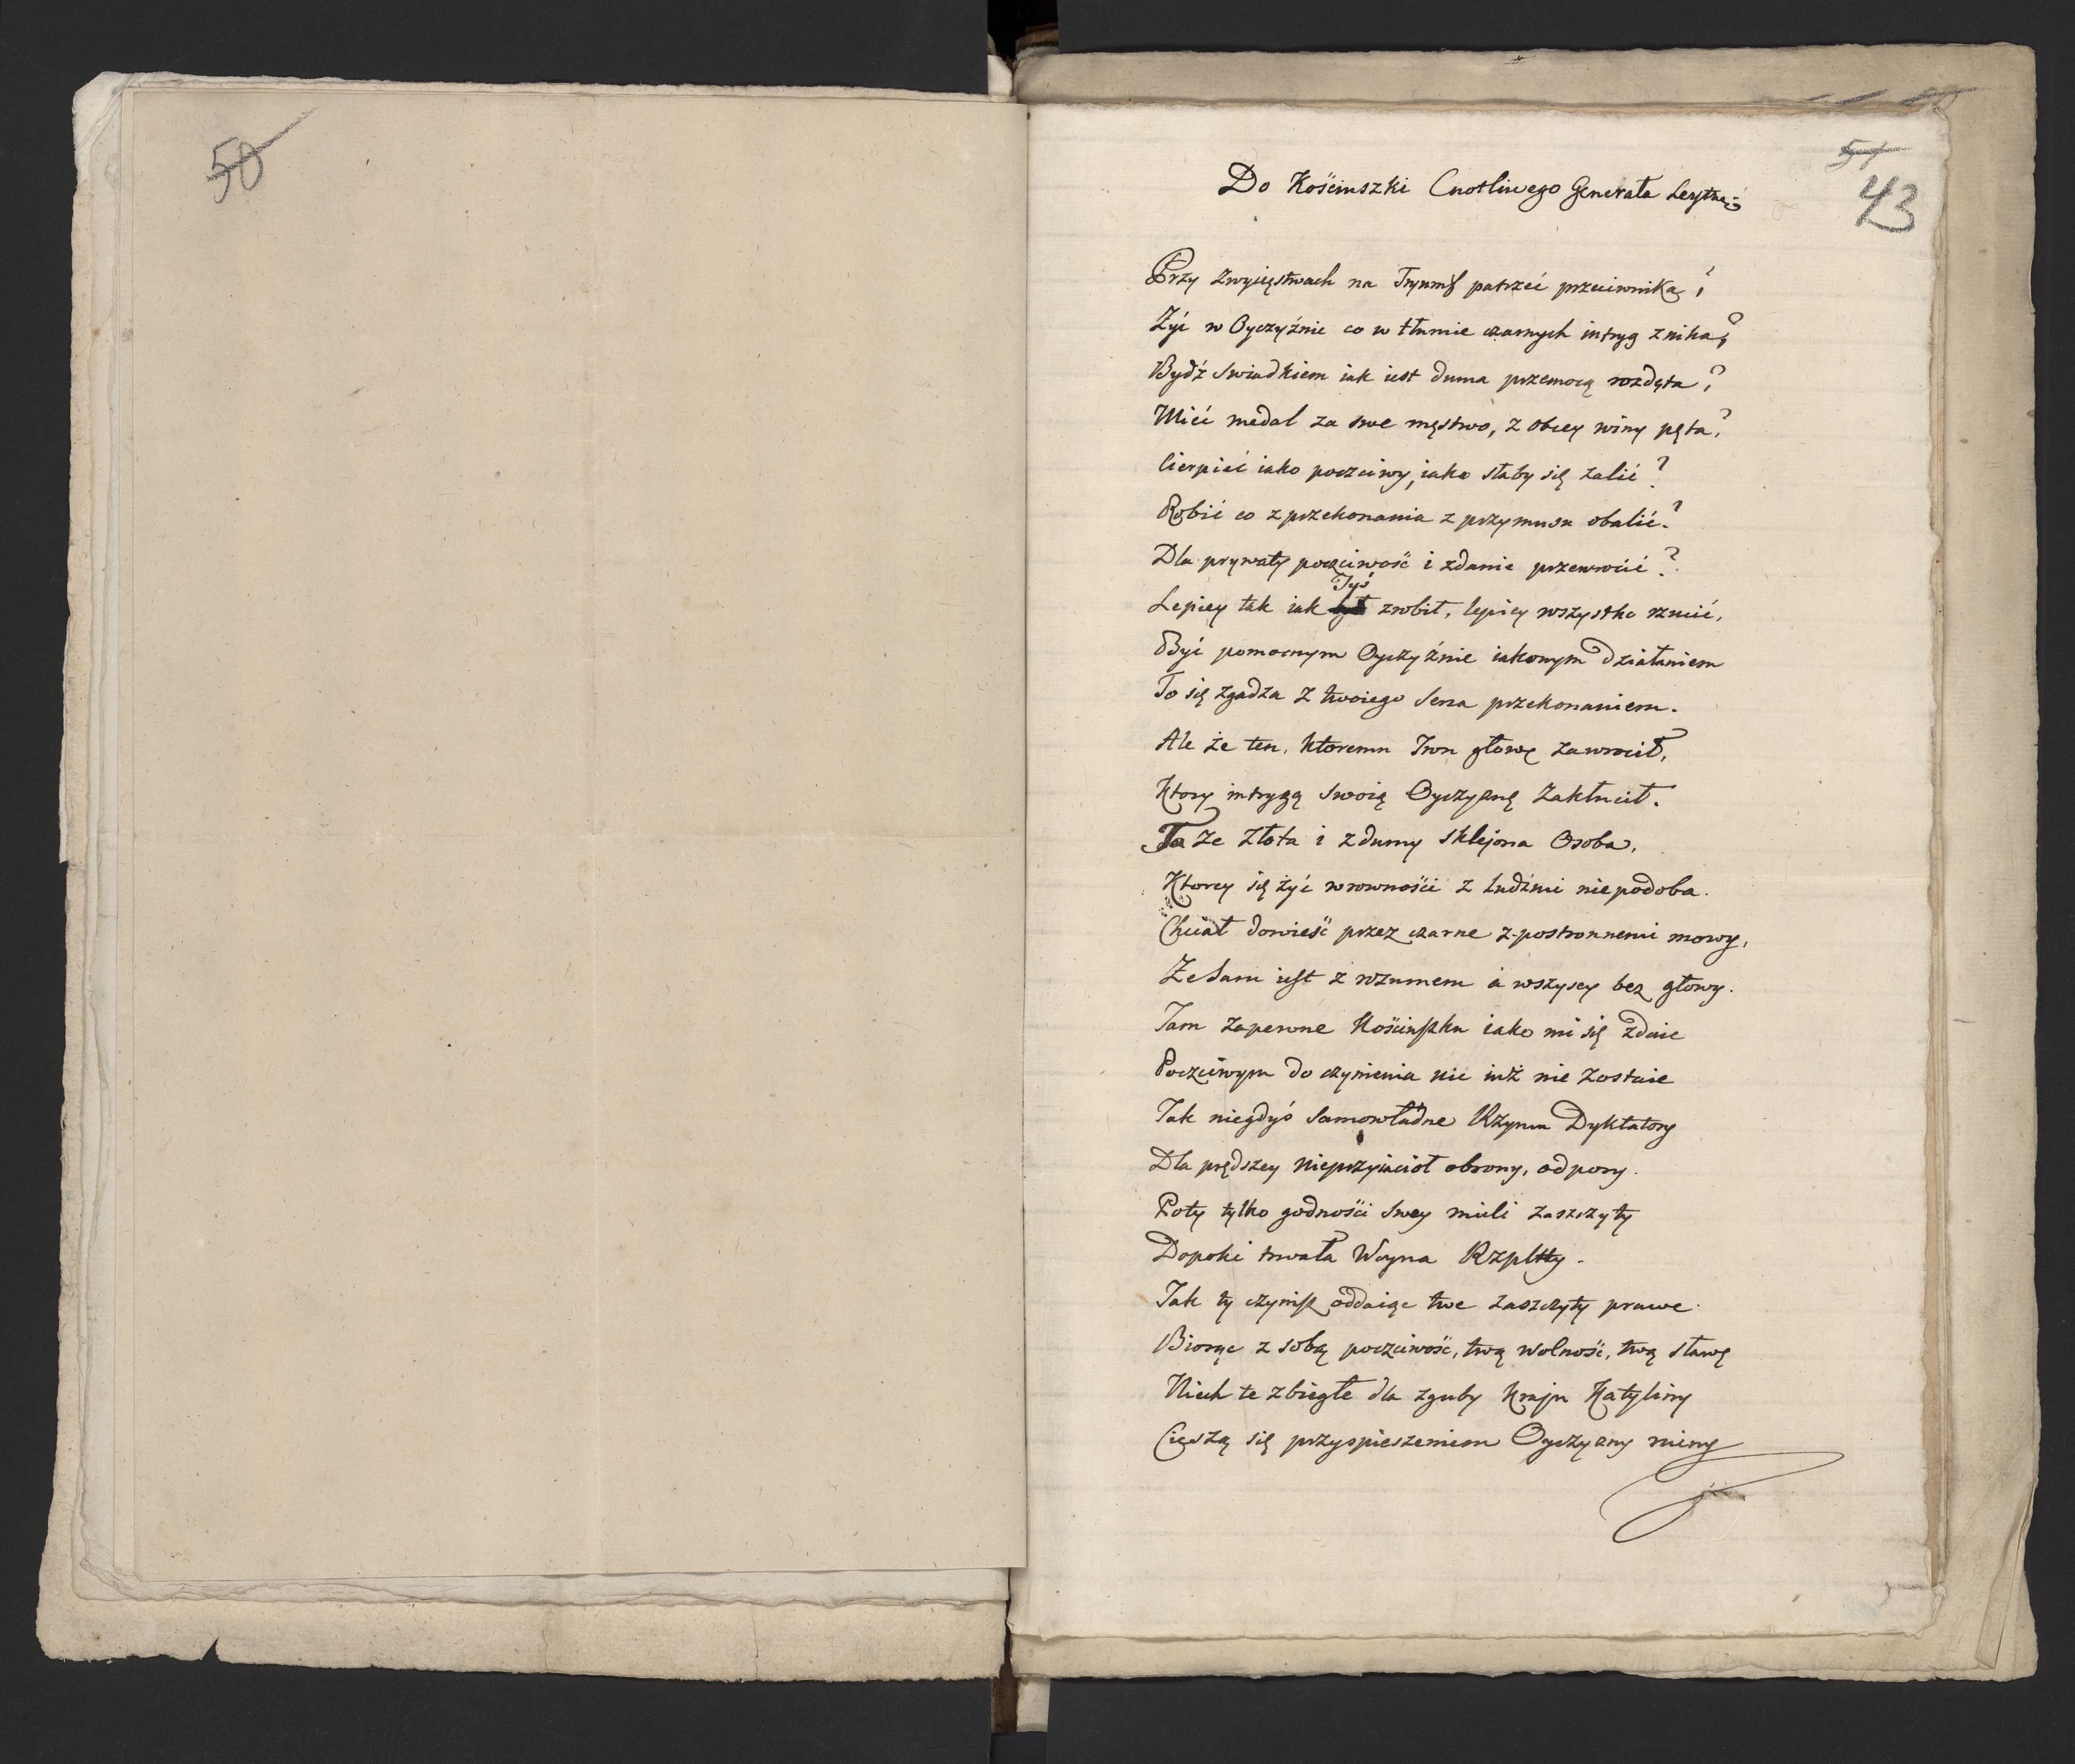 50
51
43
Do Kościuszki Cnotliwego Generała Leytnan:
Przy Zwycięstwach na Tryumf patrzeć przeciwnika?
Żyć w Oyczyźnie co w tłumie czarnych intryg znika?
Bydź Swiadkiem iak iest duma przemocą rozdęta?
Mieć medal za swe męstwo, z obcey winy pęta?
Cierpieć iako poczciwy, iako słaby się żalić?
Robić co z przekonania z przymusu obalić?
Dla prywaty poczciwość i zdanie przewrocić?
Lepiey tak iak Tyś zrobił, lepiey wszystko rzucić,
Być pomocnym Oyczyźnie iakowym działaniem
To się zgadza z twoiego Serca przekonaniem.
Ale że ten, ktoremu Tron głowę zawrocił,
Ktory intrygą swoią Oyczyznę zakłucił.
Ta ze złota i z dumy sklejona Osoba,
Ktorey się żyć w rowności z ludźmi niepodoba.
Chciał dowieść przez czarne z postronnemi mowy,
Że Sam iest z rozumem a wszyscy bez głowy.
Tam zapewne Kościuszku iako mi się zdaie
Poczciwym do czynienia nic iuż nie zostaie
Tak niegdyś Samowładne Rzymu Dyktatory
Dla prędszey nieprzyiacioł obrony, odpory.
Poty tylko godności swey mieli zaszczyty
Dopoki trwała Woyna Rzpltty.
Tak ty czynisz oddaiąc twe zaszczyty prawe.
Biorąc z sobą poczciwość, twą wolność, twą sławę
Niech te zbiegłe dla zguby kraju Katyliny
Cieszą się przyspieszeniem Oyczyzny ruiny